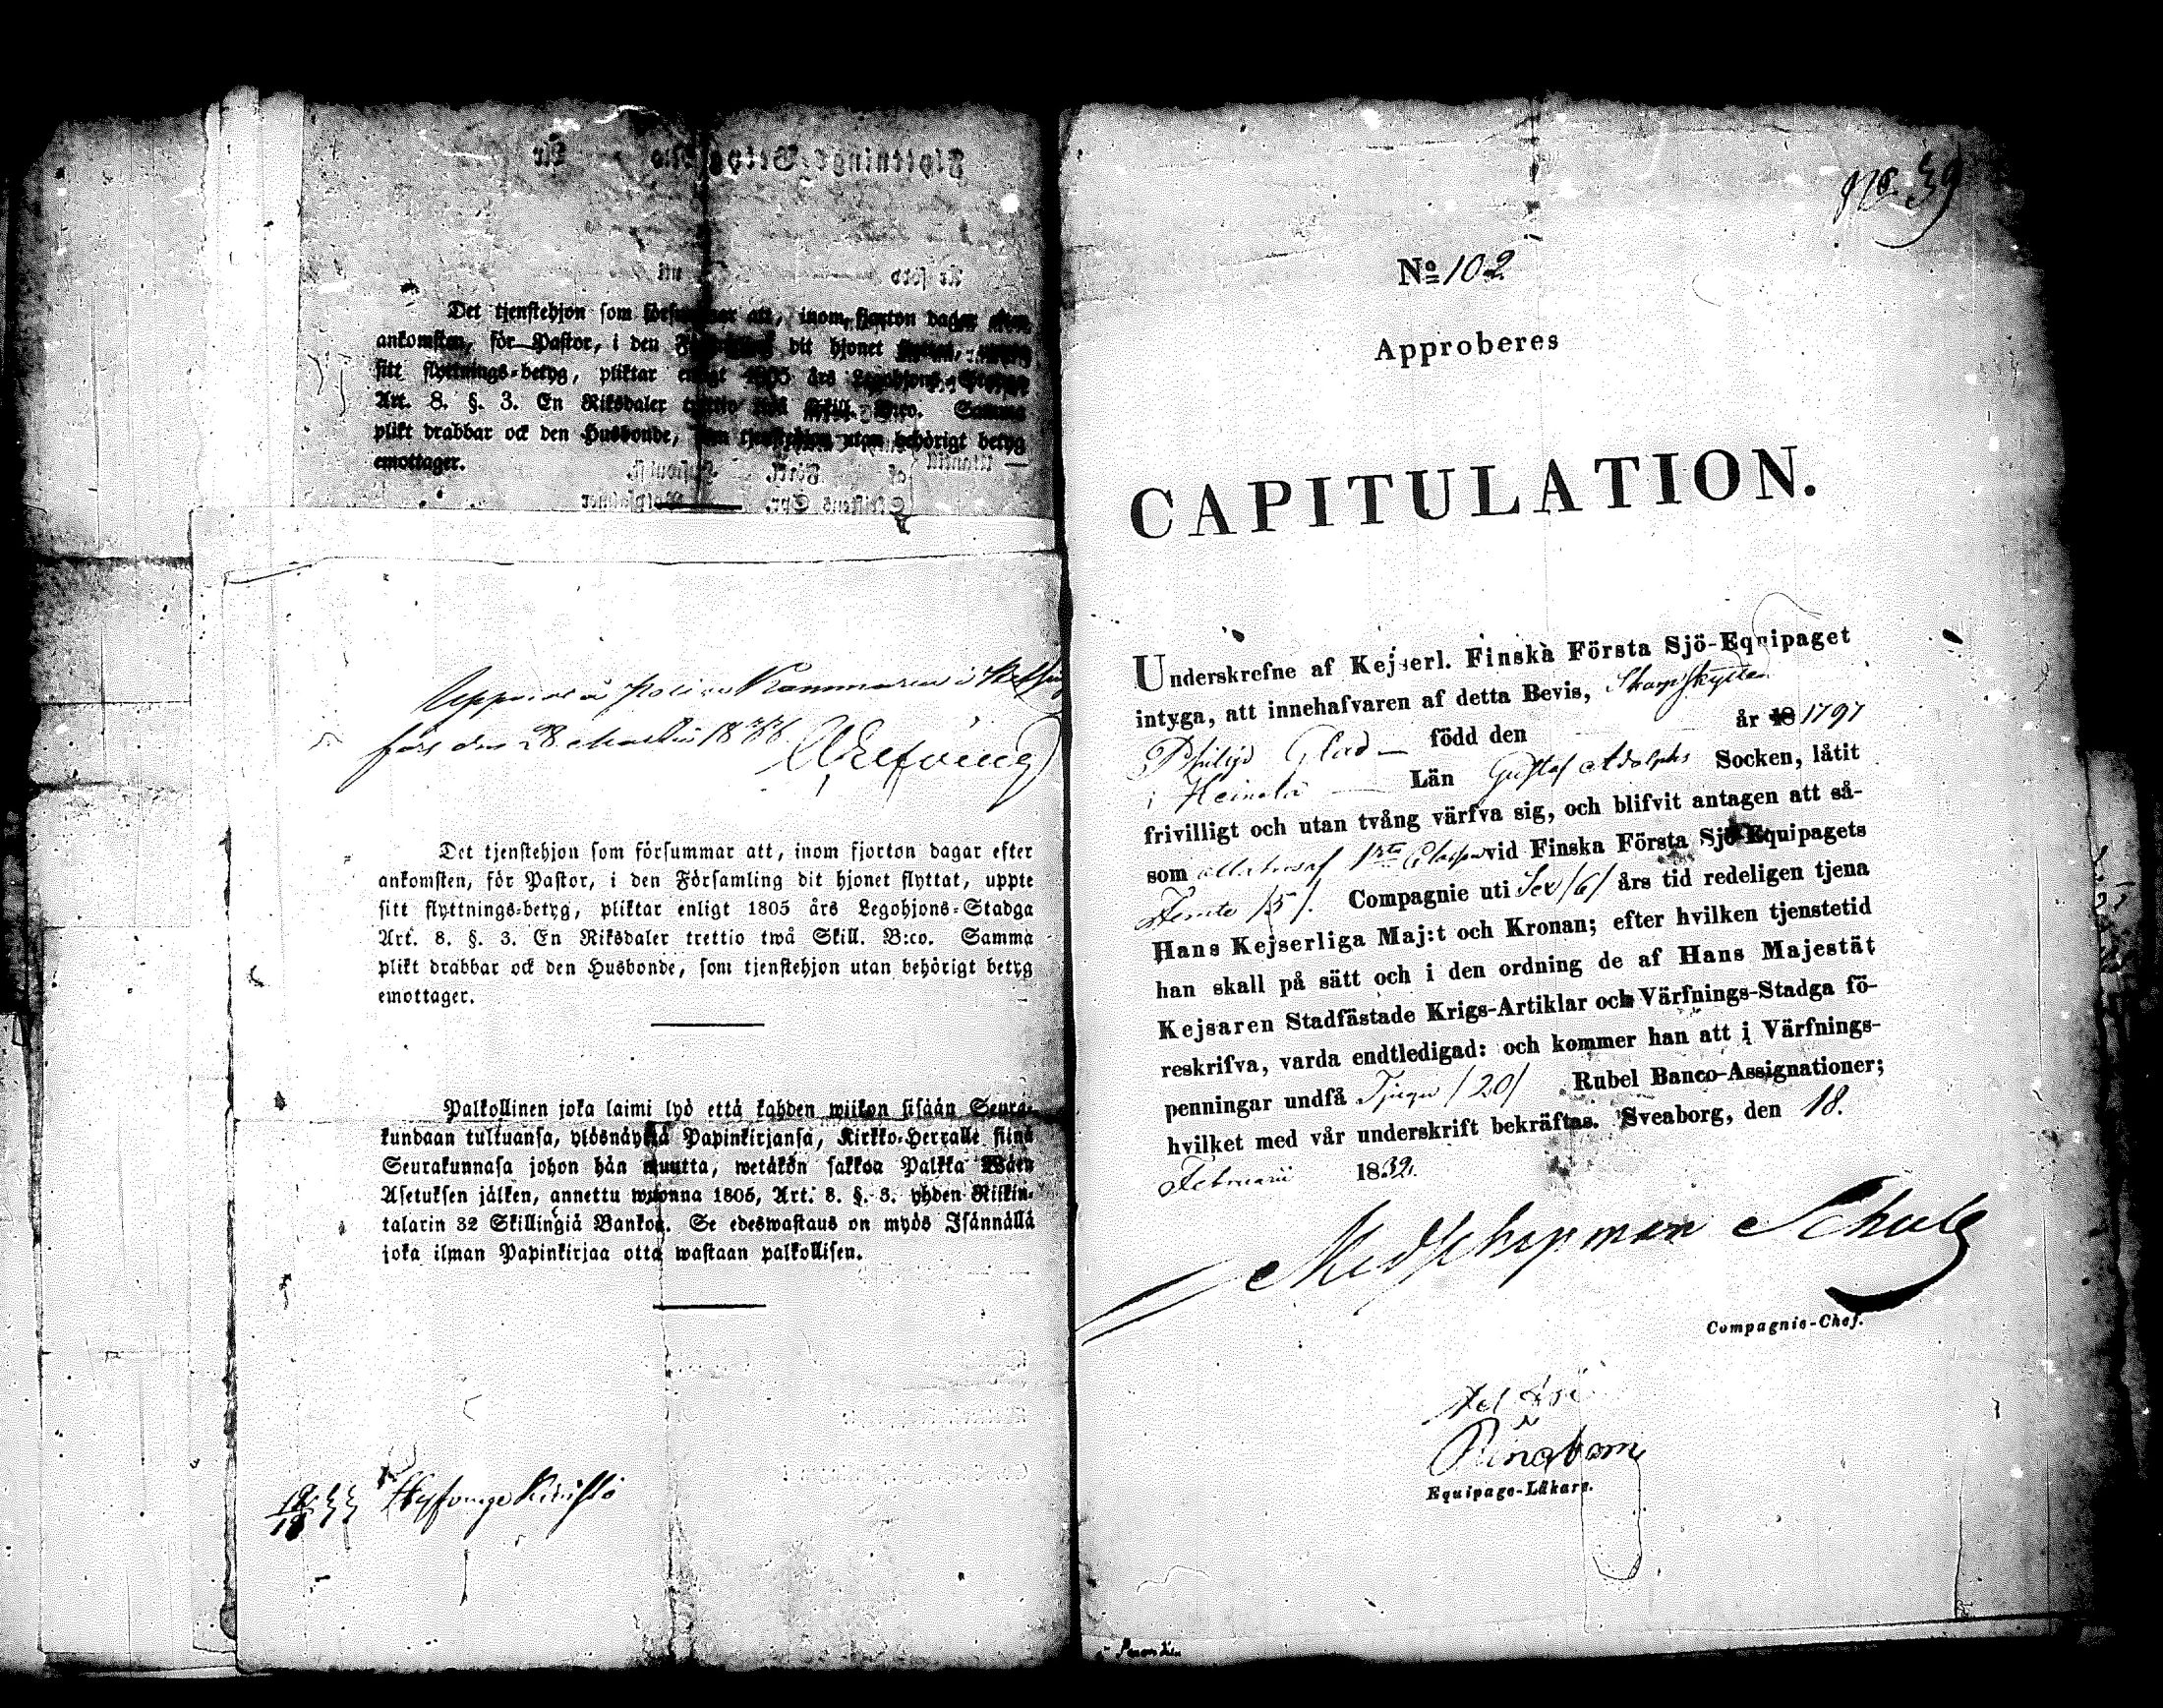 Det tjenstehjon som försummar att, inom fjorton dagar efter
ankomsten, för Pastor, i den dit hjonet
sitt flyttnings-betyg, pliktar enligt 1805 års Legohjons-Stadga
Art. 8. §. 3. En Riksdaler trettio två Skill. B:co. Samma
plikt drabbar ock den Husbonde, som tjenstehjon utan behörigt betyg
emottager.
Uppvist å Kammaren i
fors den 28 Martii 1836.
Det tjenstehjon som försummar att, inom fjorton dagar efter
ankomsten, för Pastor, i den Församling dit hjonet flyttat, uppte
sitt flyttnings-betyg, pliktar enligt 1805 års Legohjons-Stadga
Art. 8. §. 3. En Riksdaler trettio twå Skill. B:co. Samma
plikt drabbar ock den Husbonde, som tjenstehjon utan behörigt betyg
emottager.
Palkollinen joka laimi lyö että kahden wiikon sisään Seura-
kundaan tultuansa, ylösnäyttä Papinkirjansa, Kirkko-Herralle siinä
Seurakunnasa johon hän muutta, wetäkön sakkoa Palkka Wäen
Asetuksen jälken, annettu wuonna 1805, Art. 8. §. 3. yhden Riikin-
talarin 32 Skillingiä Bankoa. Se edeswastaus on myös Isännällä
joka ilman Papinkirjaa otta wastaan palkollisen.
No. 39
No 102
Approberes
CAPITULATION.
Underskrefne af Kejserl. Finska Första Sjö-Equipaget
intyga, att innehafvaren af detta Bevis, Skarpskytten
Philip Glad — född den år 18 1797
i Heinola — Län Gustaf Adolphs Socken, låtit
frivilligt och utan tvång värfva sig, och blifvit antagen att så-
som Matros af 1sta Classen vid Finska Första Sjö-Equipagets
Femte /5/. Compagnie uti Sex /6/ års tid redeligen tjena
Hans Kejserliga Maj:t och Kronan; efter hvilken tjenstetid
han skall på sätt och i den ordning de af Hans Majestät
Kejsaren Stadfästade Krigs-Artiklar och Värfnings-Stadga fö-
reskrifva, varda endtledigad: och kommer han att i Värfnings-
penningar undfå Tjugu /20/ Rubel Banco-Assignationer;
hvilket med vår underskrift bekräftas. Sveaborg, den 18.
Februarii 1832.
Chapman Schulz
Compagnie-Chef.
Ringbom
Equipage-Läkare.